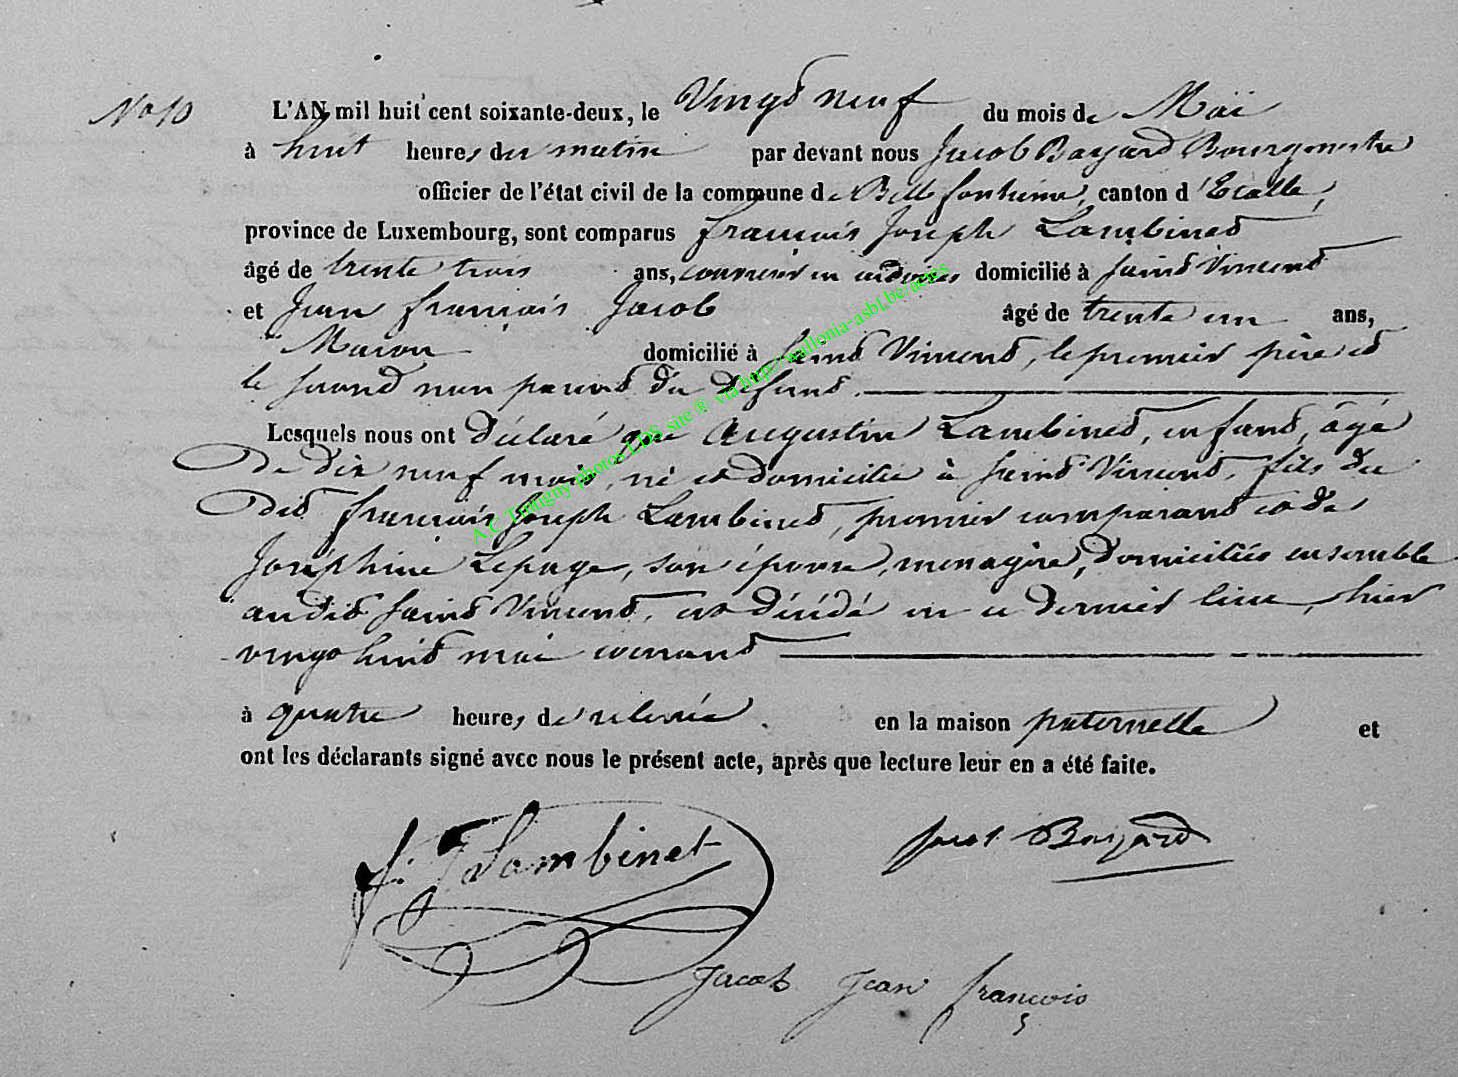 No 10
L'AN mil huit cent soixante-deux, le Vingt neuf du mois de Mai
à huit heures du matin par devant nous Jacob Bayard Bourgmestre
officier de l'état civil de la commune de Bellefontaine, canton d'Etalle,
province de Luxembourg, sont comparus François Joseph Lambinet
âgé de trente trois ans, ouvrier en ardoises domicilié à Saint Vincent
et Jean François Jacob âgé de trente un ans,
Macon domicilié à Saint Vincent, le premier père et
le second non parent du défunt.
Lesquels nous ont déclaré que Augustin Lambinet, enfant, âgé
De dix neuf mois, né et domicilié à Saint Vincent, fils du
Dit François Joseph Lambinet, premier comparant et de
Joséphine Lepage, son épouse, menagère, domiciliés ensemble
audit Saint Vincent, est décédé en ce dernier lieu, hier
vingt huit mai courant
à quatre heures de relevée en la maison paternelle et
ont les déclarants signé avec nous le présent acte, après que lecture leur en a été faite.
f. J Lambinet
Jacob Bayard
Jacob Jean françois
A.C. Tintigny photos LDS site ® via http://wallonia-asbl.be/actes